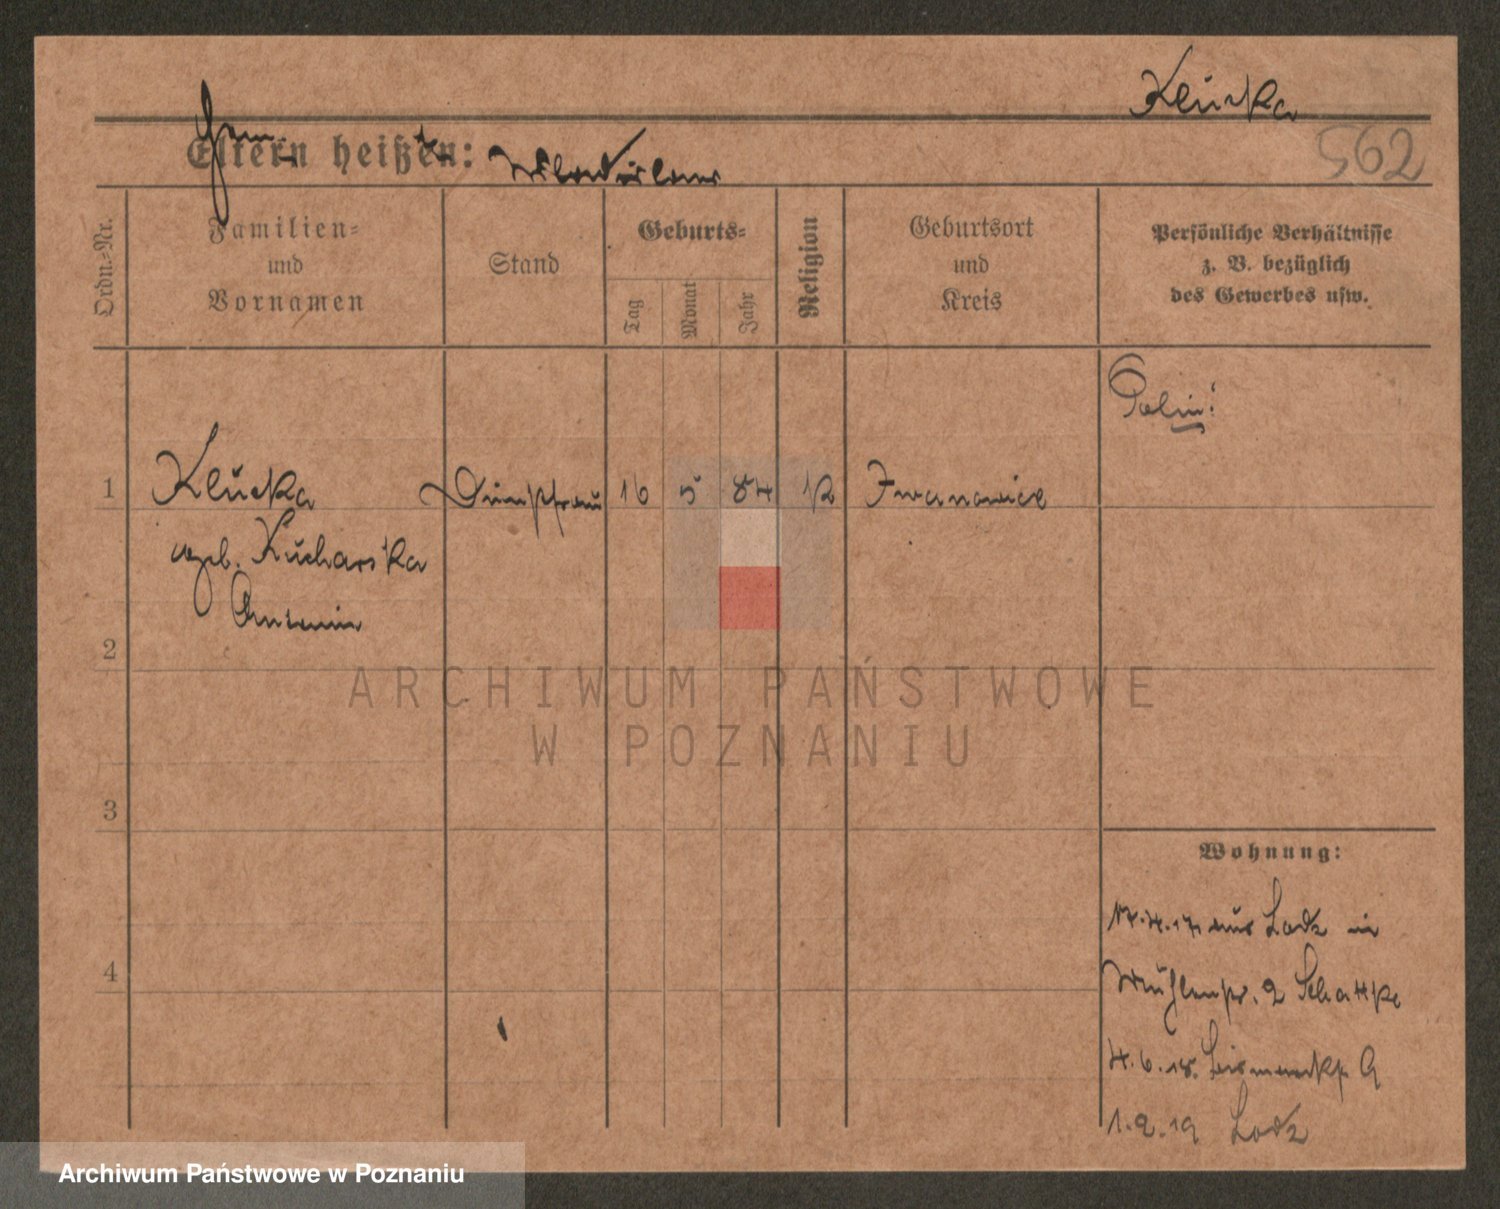 Klucka
562
Eltern heißen:
Ordn.-Nr.
Familien-
und
Vornamen
Stand
Geburts-
Tag
Monat
Jahr
Religion
Geburtsort
und
Kreis
Persönliche Verhältnisse
z. B. bezüglich
des Gewerbes usw.
Polin!
1 Klucka 16 5 84 K Iwanowice
geb. Kucharska
Antonie
2
3
4
Wohnung:
17.4.17. aus Lodz in
Mühlenstr. 2 Schattke
4.6.18. Bismarckstr. 9
1.2.19 Lodz
ARCHIWUM PAŃSTWOWE
W POZNANIU
Archiwum Państwowe w Poznaniu